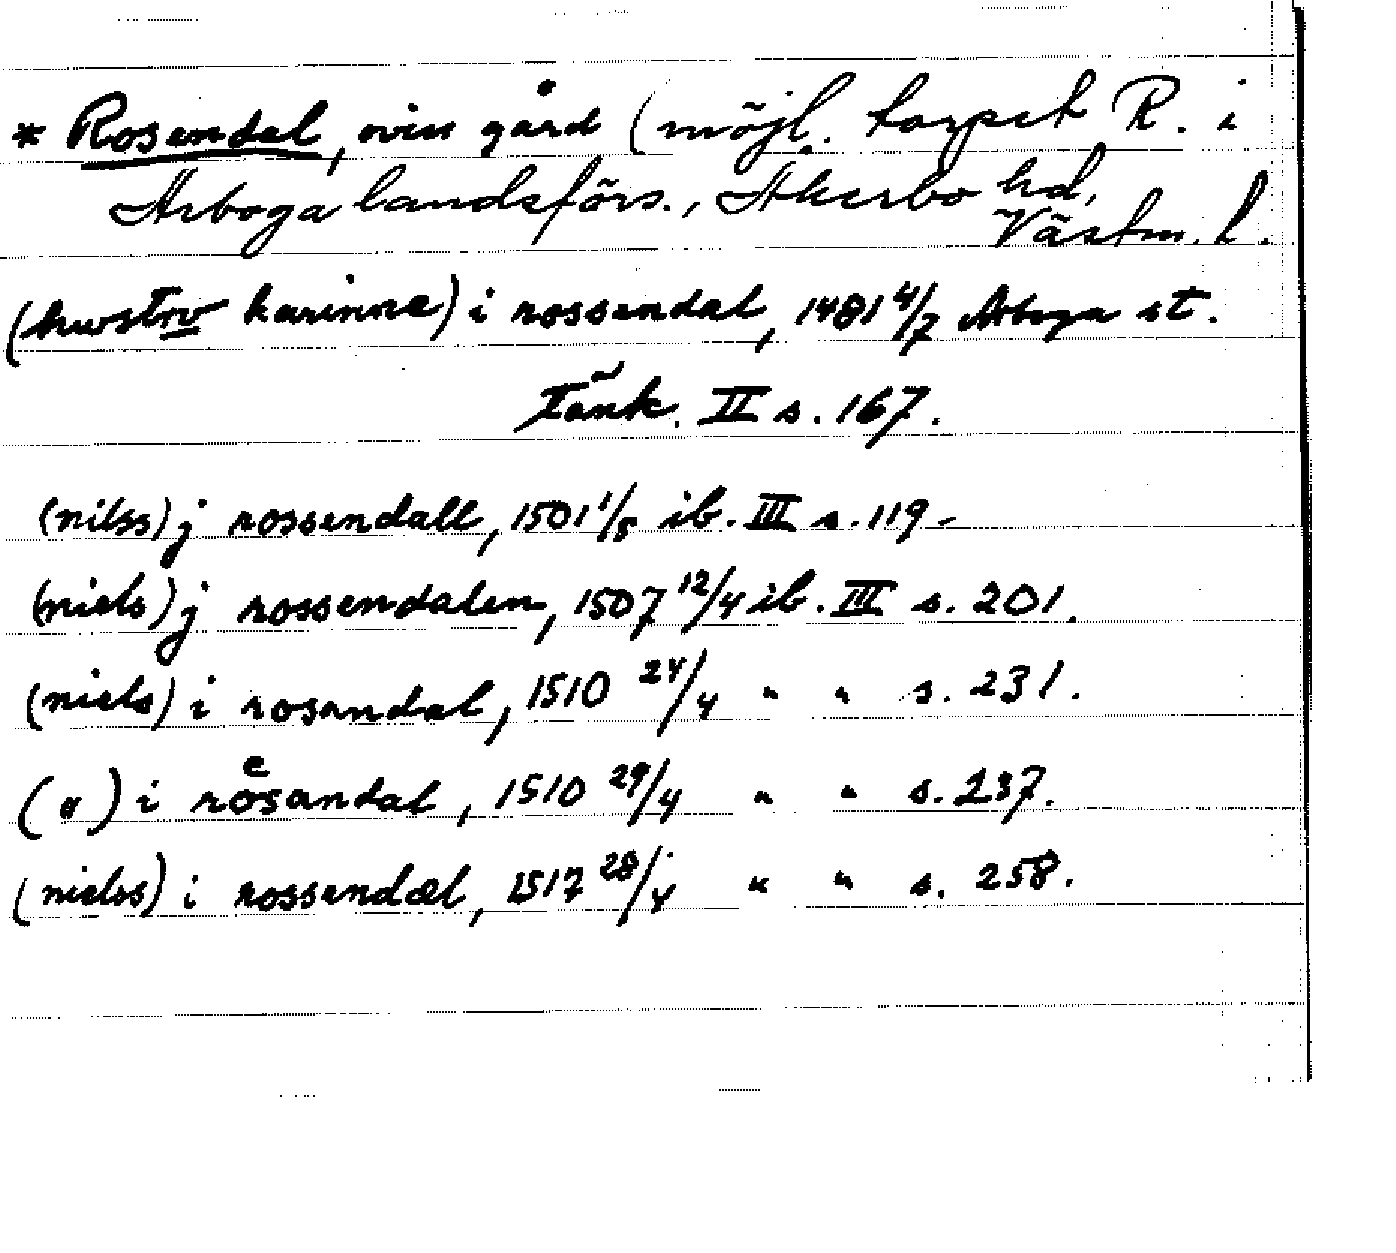 * Rosendal, oviss gård (möjl. torpet R. i
Arboga landsförs., Åkerbo hd,
Västm. l.
(hwstrv karinne) i rossendal, 1481 4/7 Arboga st.
Tänk. II s. 167.
(nilss) j rossendall, 1501 1/8 ib. III s. 119.
(niels) j rossendalen, 1507 12/4 ib. III s. 201.
(niels) i rosandal, 1510 24/4 " " s. 231.
(") i roͤsandal, 1510 29/4 " " s. 237.
(nielss) i rossendæl, 1517 28/4 " " s. 258.